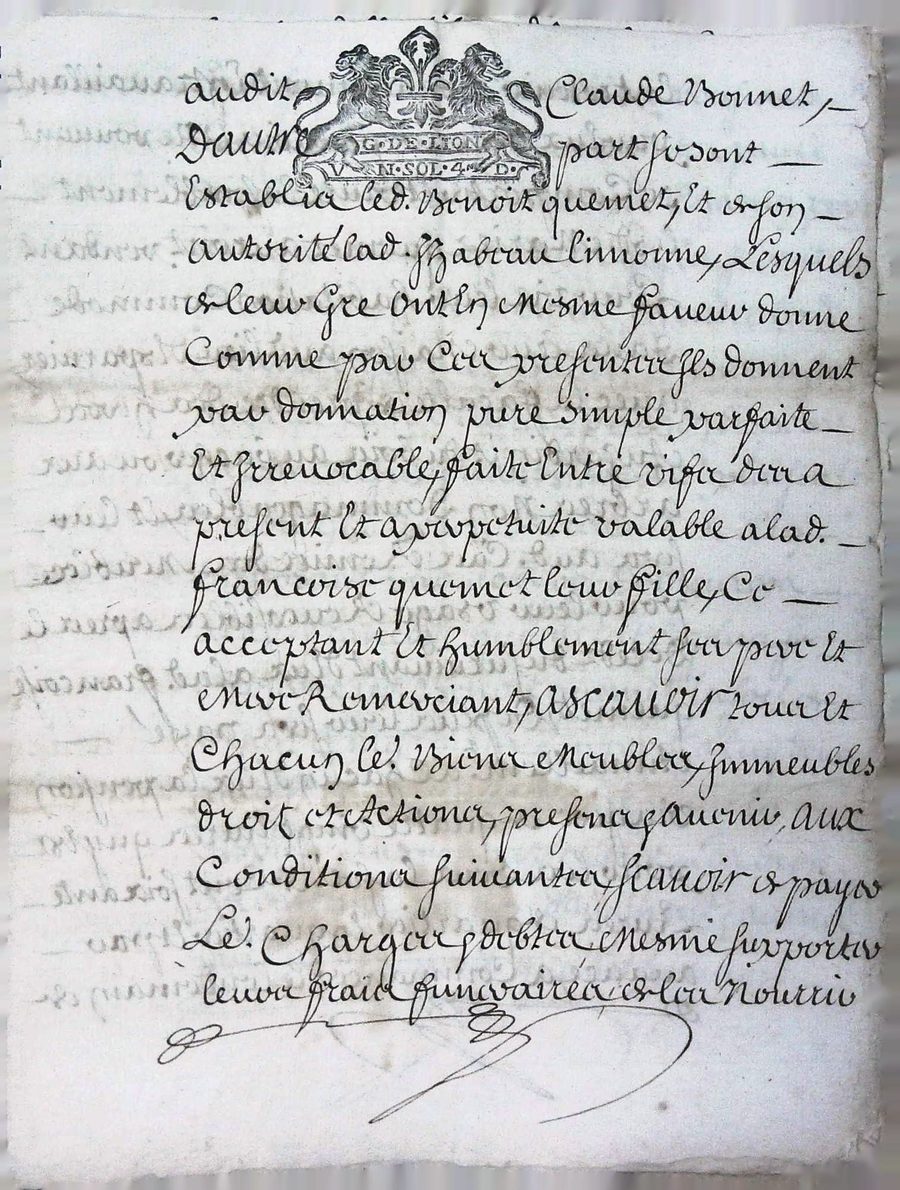 audit Claude Bonnet,
G·DE·LION
V N·SOL·4 D·
Dautre part se sont
Establis led. Benoit quemet, Et de son
autorité lad. Izabeau limonne, Lesquels
de leur Gre ont En Mesme faveur donne
Comme par Ces presentes Ils donnent
par donnation pure simple parfaite
Et Irrevocable, faite Entre vifs des a
present Et a perpetuite valable a lad.
francoise quemet leur fille, Ce
acceptant Et humblement ses pere Et
Mere Remerciant, ascauoir tous Et
Chacun le.s Biens Meubles, Immeubles
droit et Actions, presens, avenir, aux
Conditions suivantes, scauoir de payer
Le.s Charges, debtes, Mesme supporter
leurs frais funeraires, de les Nourrir